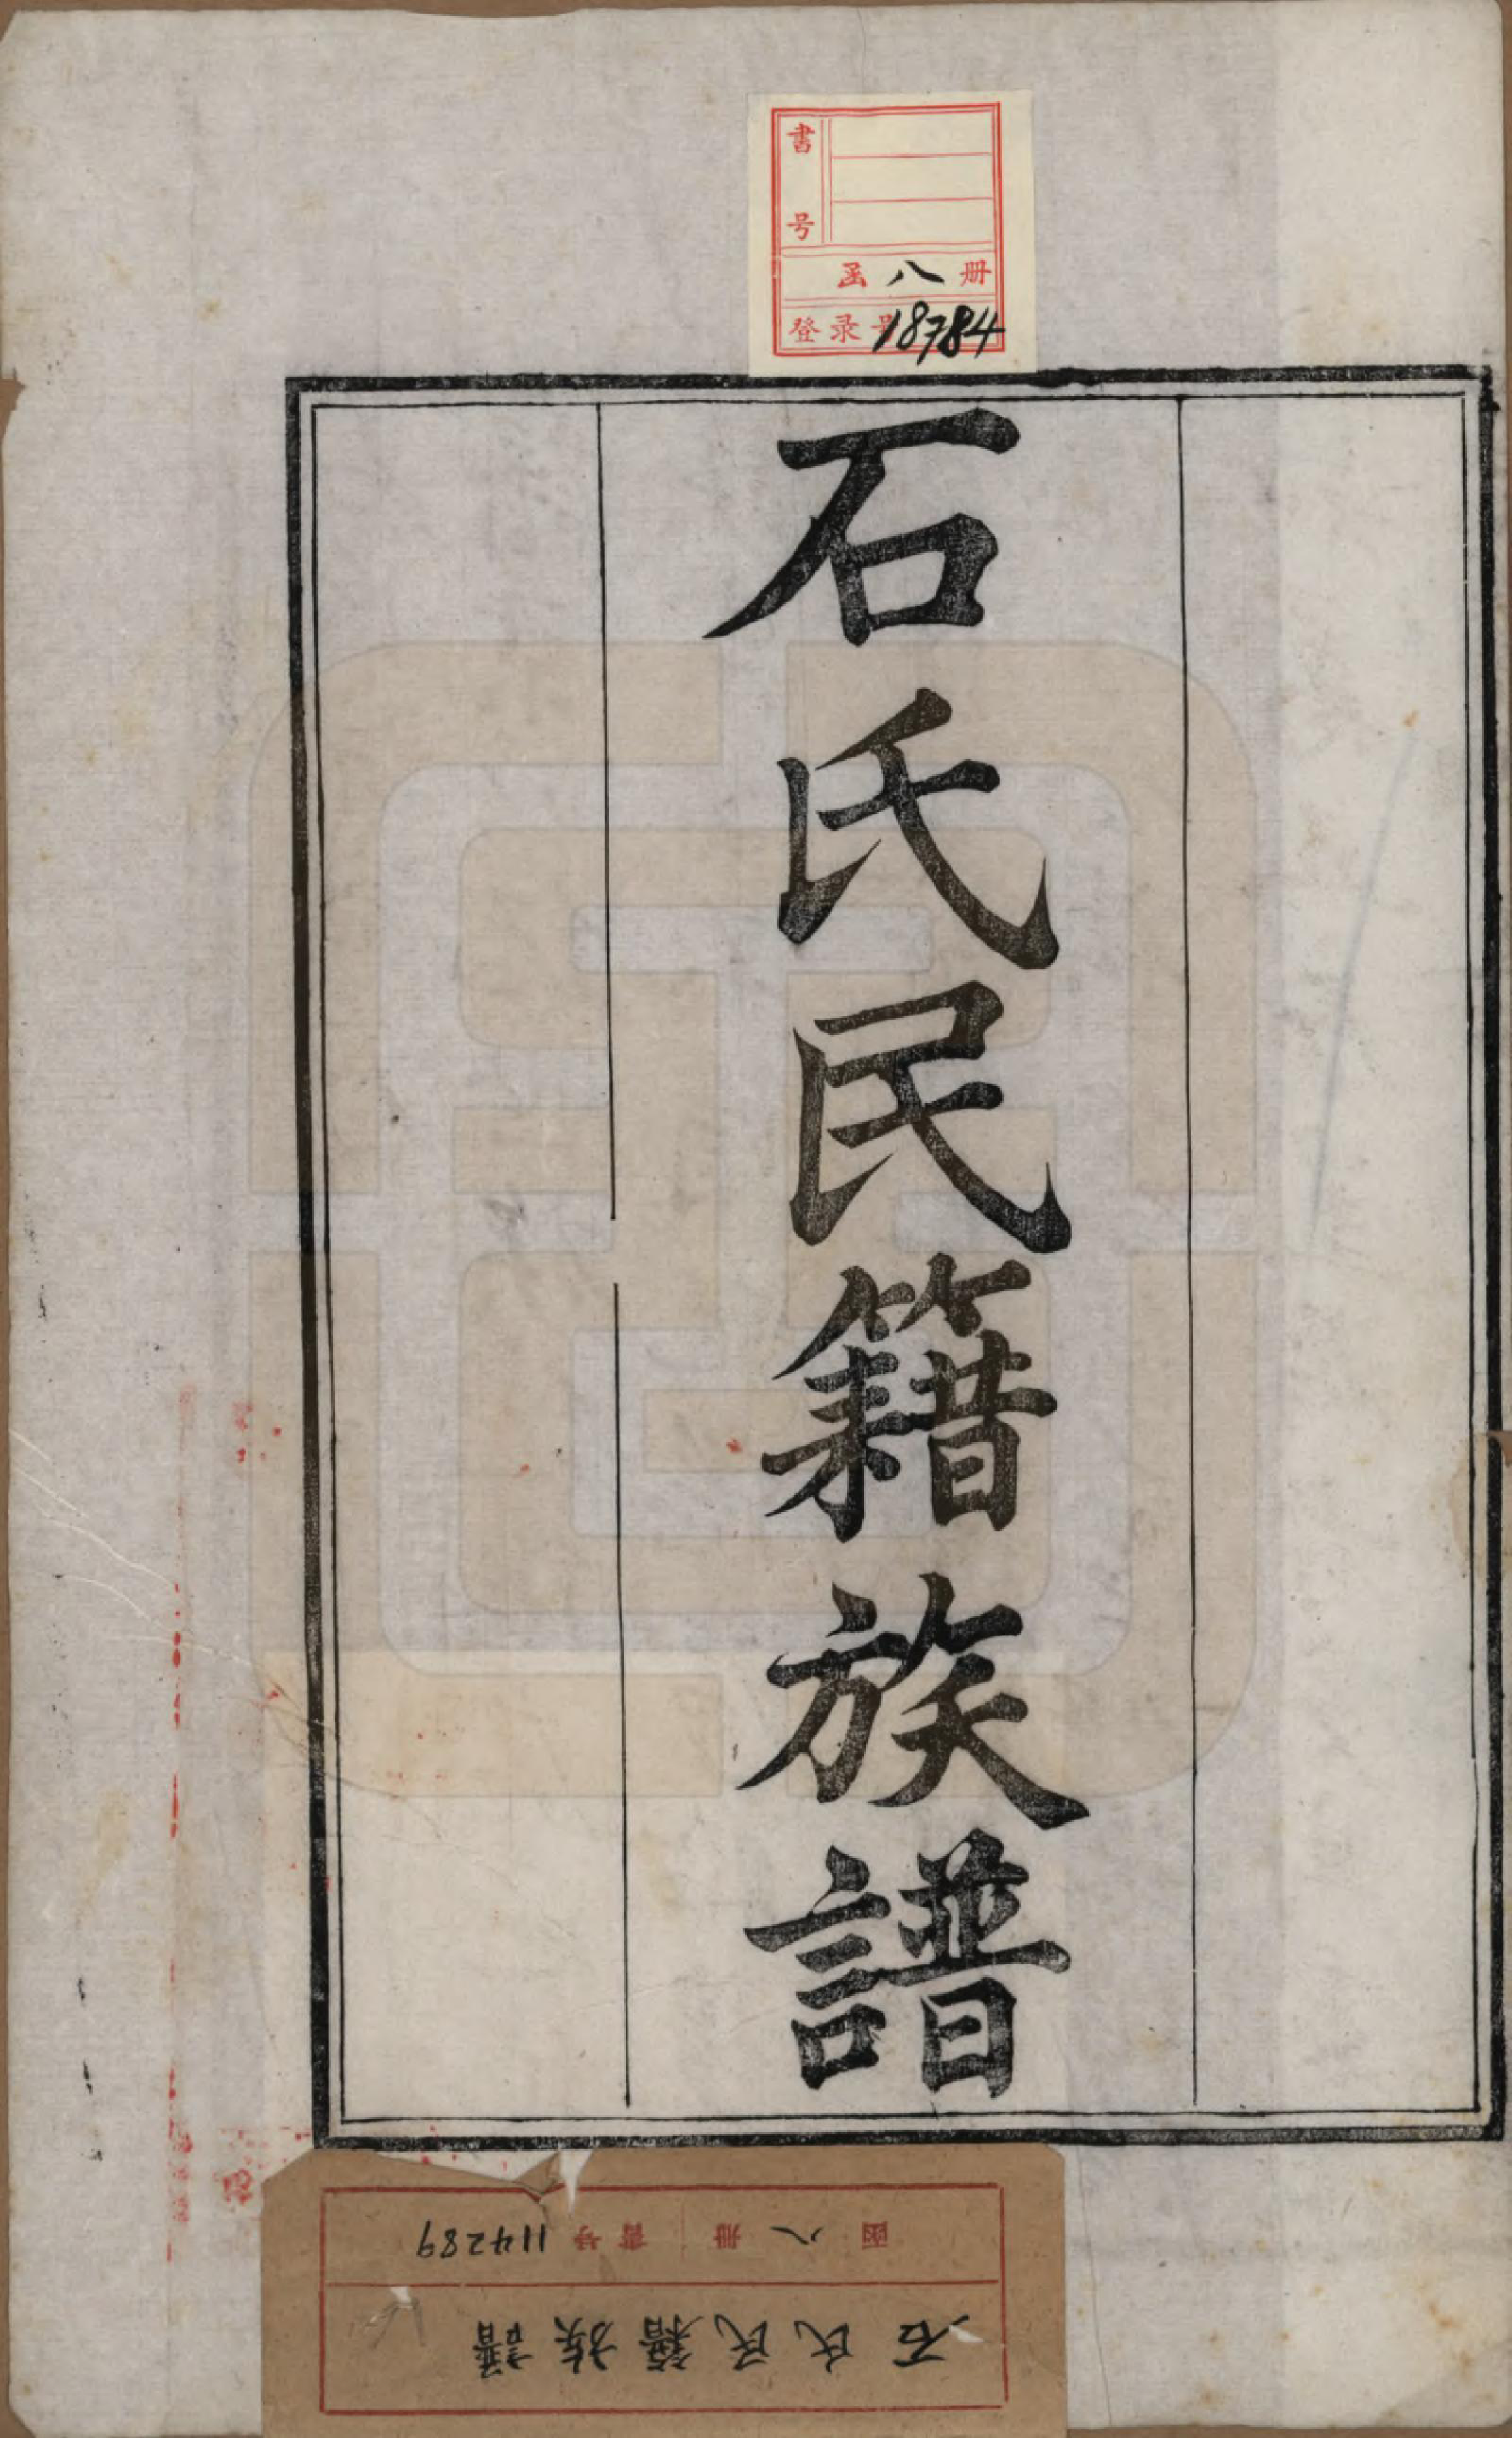 書号
函八册
登录号18784
石氏民籍族譜
函八册 書号 114289
石氏民籍族譜